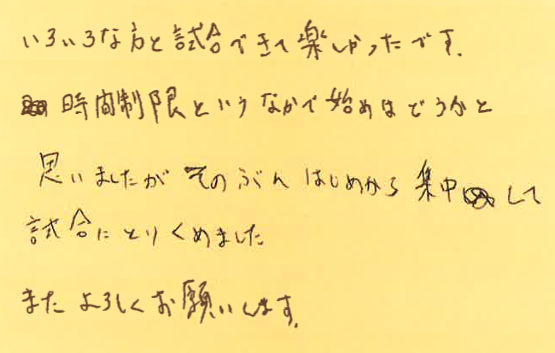 いろいろな方と試合できて楽しかったです.
時間制限というなかで始めはどうかと
思いましたが そのぶん はじめから 集中して
試合にとりくめました
また よろしくお願いします.